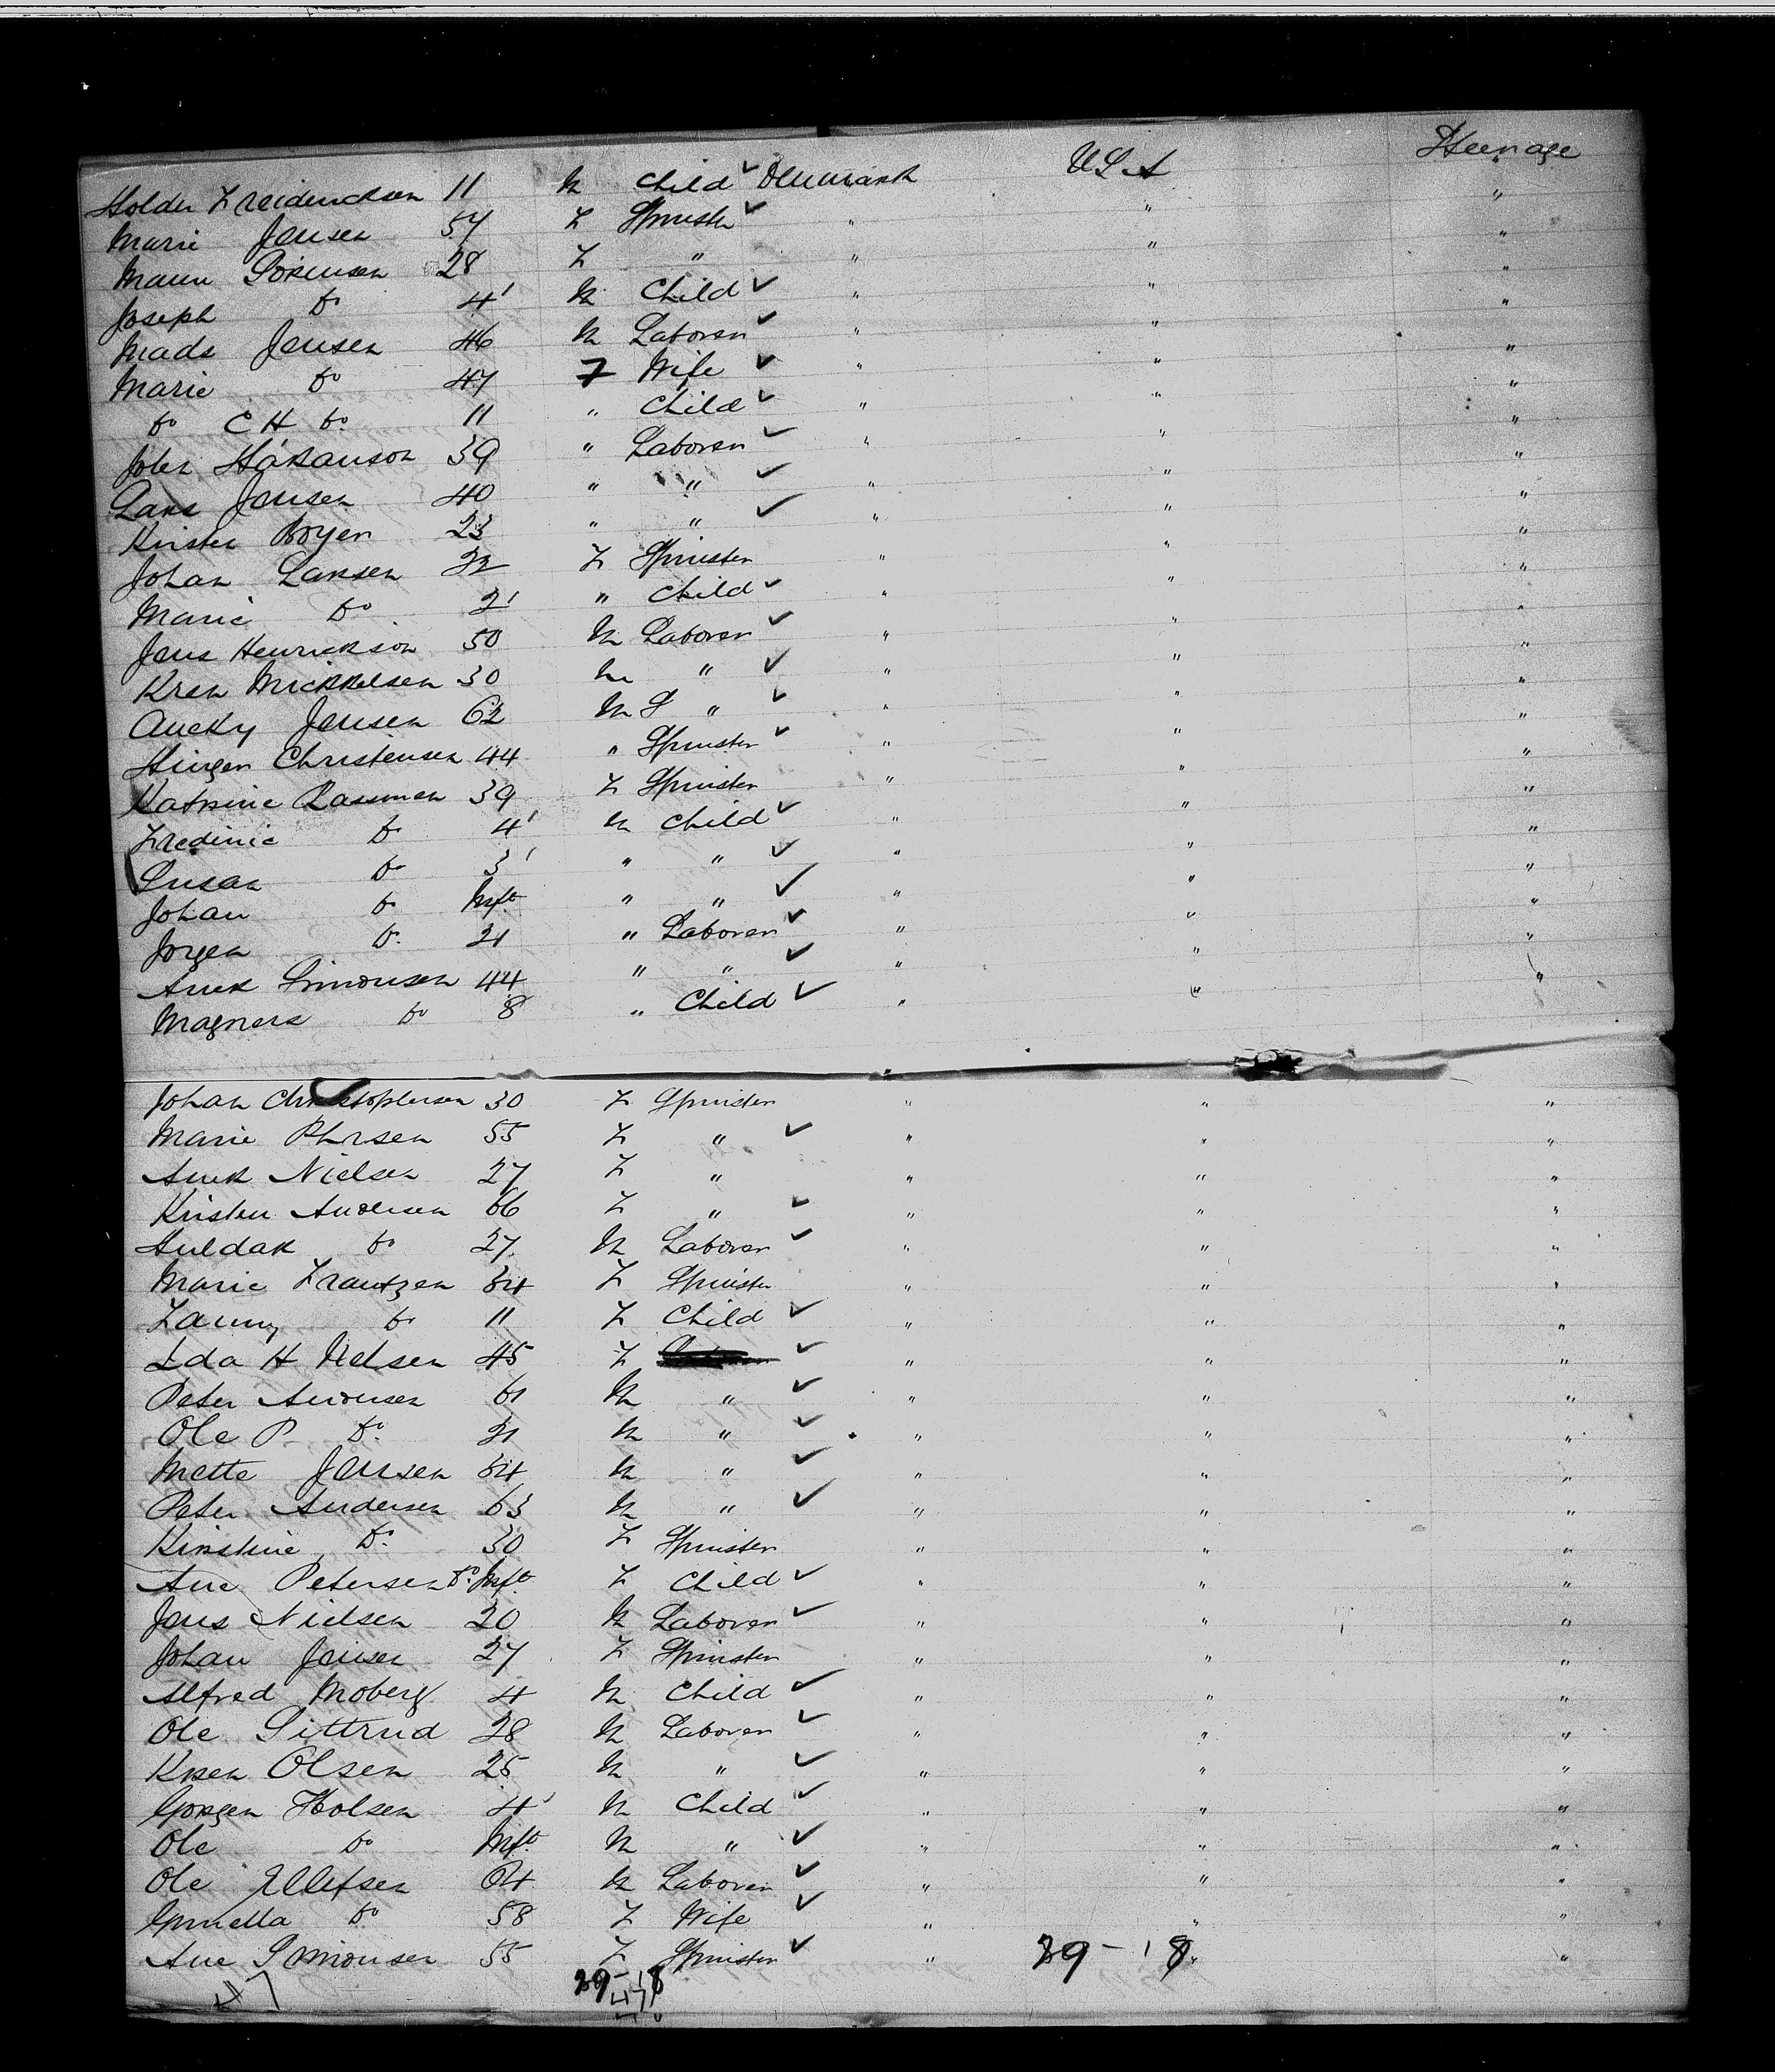 Holder Freiderickson 11 M Child ✓ Denmark USA Steerage
Marie Jensen 57 F Spinster ✓ " " "
Maun Sorensen 28 F " " " "
Joseph Do 4 M Child ✓ " " "
Mads Jensen 46 M Laborer ✓ " " "
Marie Do 47 F Wife ✓ " " "
Do C H Do 11 " Child ✓ " " "
John Håkanson 39 " Laborer ✓ " " "
Lars Jensen 40 " " ✓ " " "
Kirsten Boyer 23 " " ✓ " " "
Johan Larsen 22 F Spinster " " "
Marie Do 2 " Child ✓ " " "
Jens Henrickson 50 M Laborer ✓ " " "
Kren Mickkelsen 30 M " ✓ " " "
Jensen 62 M " ✓ " " "
Christensen 44 " Spinster ✓ " " "
Katrine Rasmen 39 F Spinster " " "
Fredinic Do 4 M Child ✓ " " "
Susan Do 3 " " ✓ " " "
Johan Do Inft " " ✓ " " "
Jorgen Do 21 " Laborer ✓ " " "
Simonsen 44 " " ✓ " " "
Magners Do 8 " Child ✓ " " "
Johan Christophersen 30 F Spinster " " "
Marie 55 F " ✓ " " "
Nielsen 27 F " " " "
Kirsten Andersen 66 F " ✓ " " "
Huldak Do 27 M Laborer ✓ " " "
Marie Frantzen 34 F Spinster " " "
Fanny Do 11 F Child ✓ " " "
Ida H Nelsen 45 F ✓ " " "
Peter Andersen 61 M " ✓ " " "
Ole P Do 21 M " ✓ " " "
Mette Jensen 34 M " ✓ " " "
Peter Andersen 63 M " ✓ " " "
Kirstine Do 30 F Spinster " " "
Ane Petersen Do Inft F Child ✓ " " "
Jens Nielsen 20 M Laborer ✓ " " "
Johan Jensen 27 F Spinster " " "
Alfred Moberg 4 M Child ✓ " " "
Ole Sittrud 28 M Laborer ✓ " " "
Kren Olsen 25 M " ✓ " " "
Gorgen Holsen 4 M Child ✓ " " "
Ole Do Inft M " ✓ " " "
Ole Ellefsen 64 M Laborer ✓ " " "
Gunella Do 58 F Wife ✓ " " "
Ane Simonsen 55 F Spinster ✓ " " "
29-18
47 29-18
47